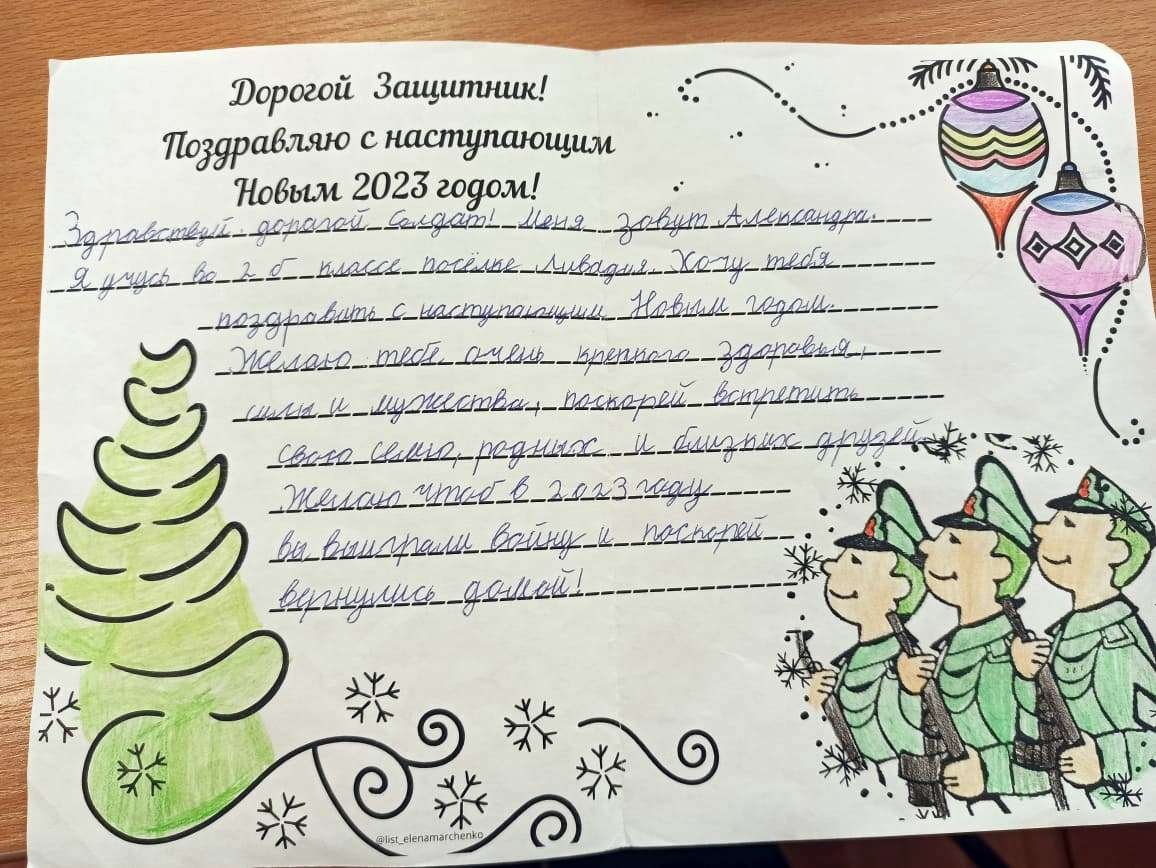 Дорогой Защитник!
Поздравляю с наступающим
Новым 2023 годом!
Здравствуй дорогой Солдат! Меня зовут Александра.
Я учусь во 2 б классе посёлке Ливадия. Хочу тебя
поздравить с наступающим Новым годом.
Желаю тебе очень крепкого здоровья,
силы и мужества, поскорей встретить
свою семю, родных и близких друзей.
Желаю чтоб в 2023 году
вы выиграли войну и поскорей
вернулись домой!
@list_elenamarchenko